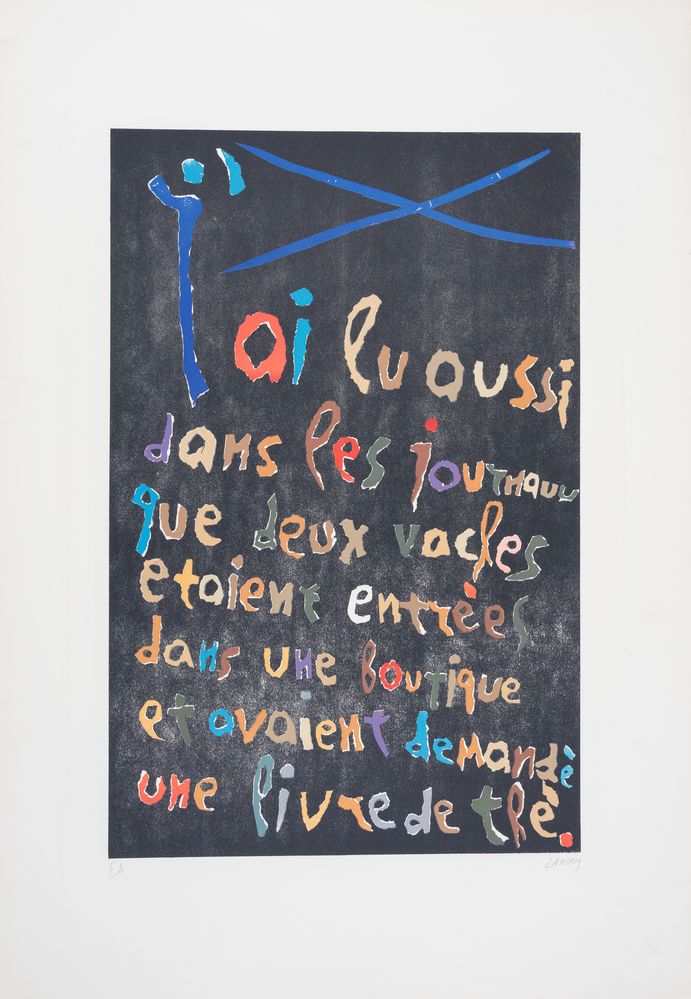 j'ai lu aussi
dans les journaux
que deux vaches
etaient entrèes
dans une boutique
et avaient demandè
une livre de thè.
E.A LANSKOY